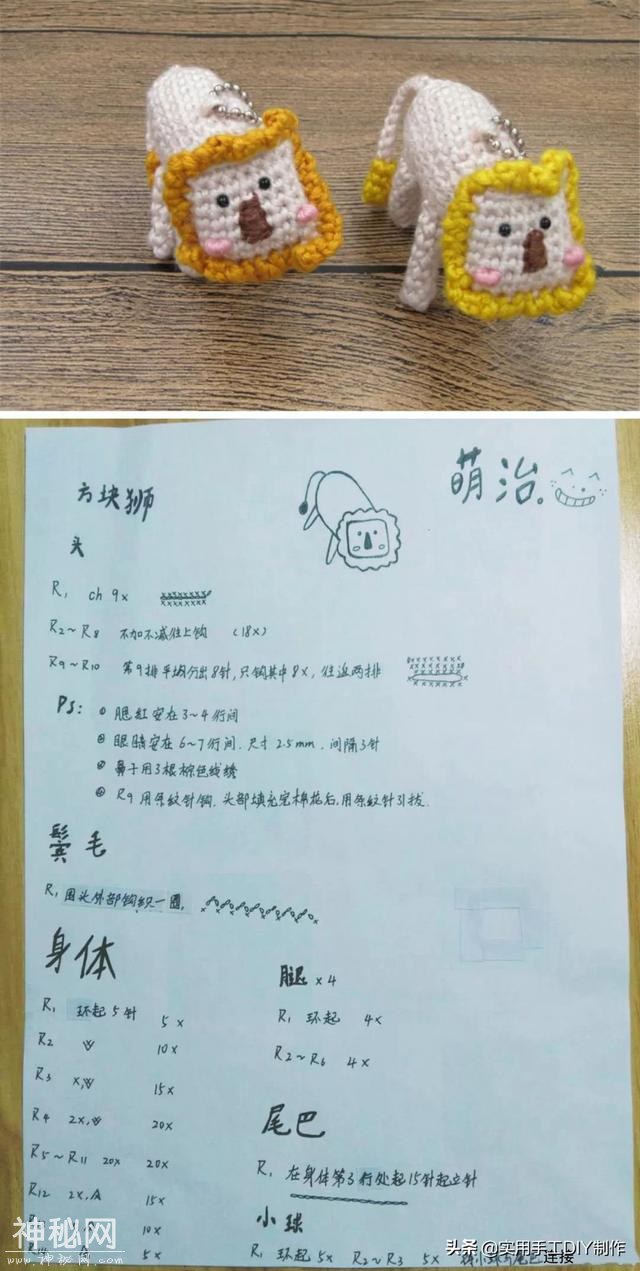 方块狮
萌治。
头
R1 ch 9x
R2~R8 不加不减往上钩 (18x)
R9~R10 第9排平均分出8针,只钩其中8x,往返两排
Ps: ① 腮红安在3~4行间
② 眼睛安在6~7行间.尺寸2.5mm.间隔3针
鼻子用3根棕色线绣
R9用条纹针钩.头部填充完棉花后,用条纹针引拔.
鬃毛
R1 围头外部钩织一圈,
身体
R1 环起5针 5x
R2 10x
R3 15x
R4 20x
R5~R11 20x 20x
R12 2x,A 15x
10x
R14 A 5x
腿x4
R1 环起 4x
R2~R6 4x
尾巴
R1 在身体第3行处起15针起立针
小球
R1 环起5x R2~R3 5x
连接
神秘网
www.神秘网.com
头条 @实用手工DIY制作